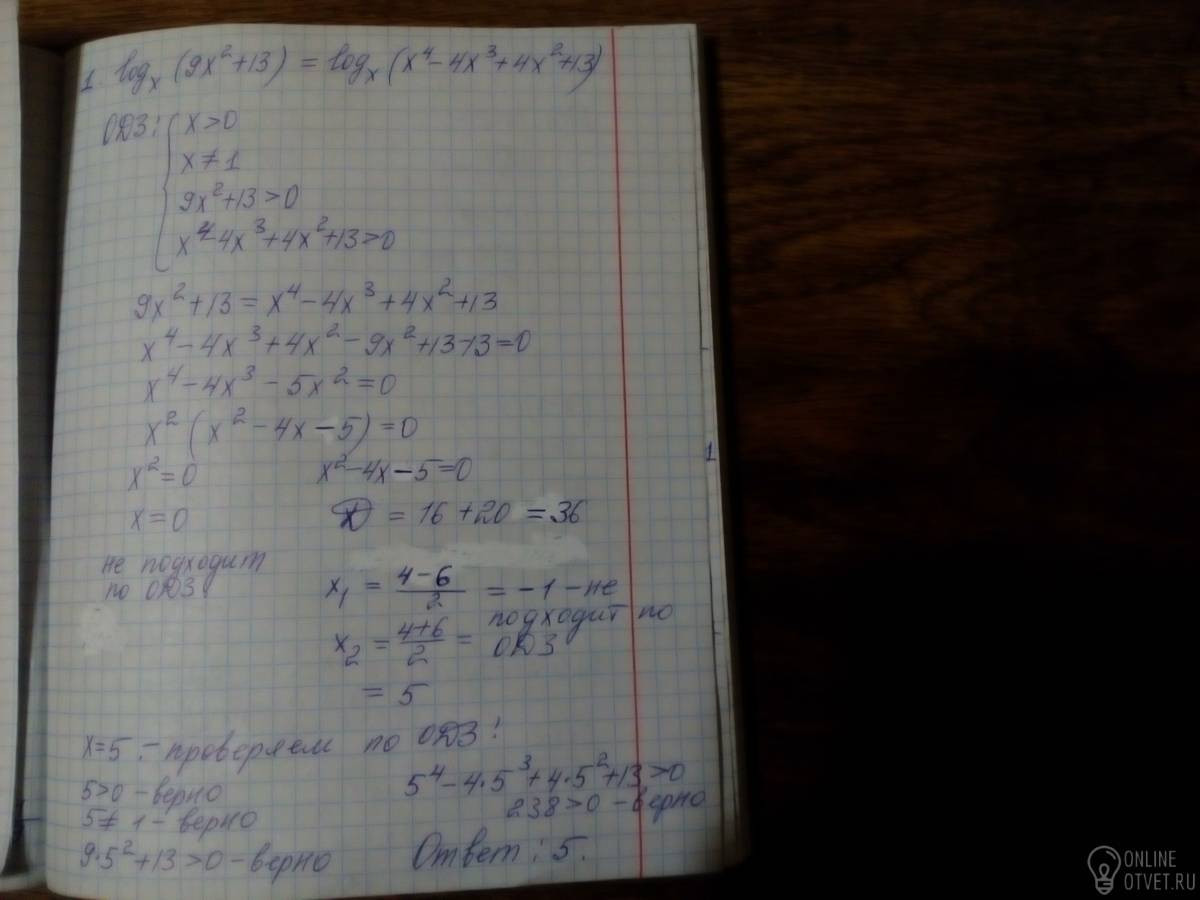 1. log_x (9x²+13) = log_x (x⁴-4x³+4x²+13)
ОДЗ: { x>0
x≠1
9x²+13>0
x⁴-4x³+4x²+13>0
9x²+13=x⁴-4x³+4x²+13
x⁴-4x³+4x²-9x²+13-13=0
x⁴-4x³-5x²=0
x²(x²-4x-5)=0
x²=0 x²-4x-5=0
x=0 D = 16+20 = 36
не подходит
по ОДЗ
x₁ = (4-6)/2 = -1 - не
подходит по
ОДЗ
x₂ = (4+6)/2 =
= 5
x=5 - проверяем по ОДЗ:
5>0 - верно
5≠1 - верно
9·5²+13>0 - верно
5⁴-4·5³+4·5²+13>0
238>0 - верно
Ответ: 5.
1
ONLINE
OTVET.RU